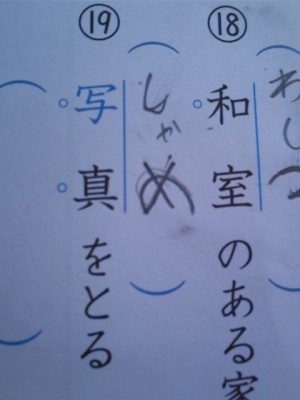 ⑱
和室のある家
わしつ
⑲
写真をとる
しゃめ